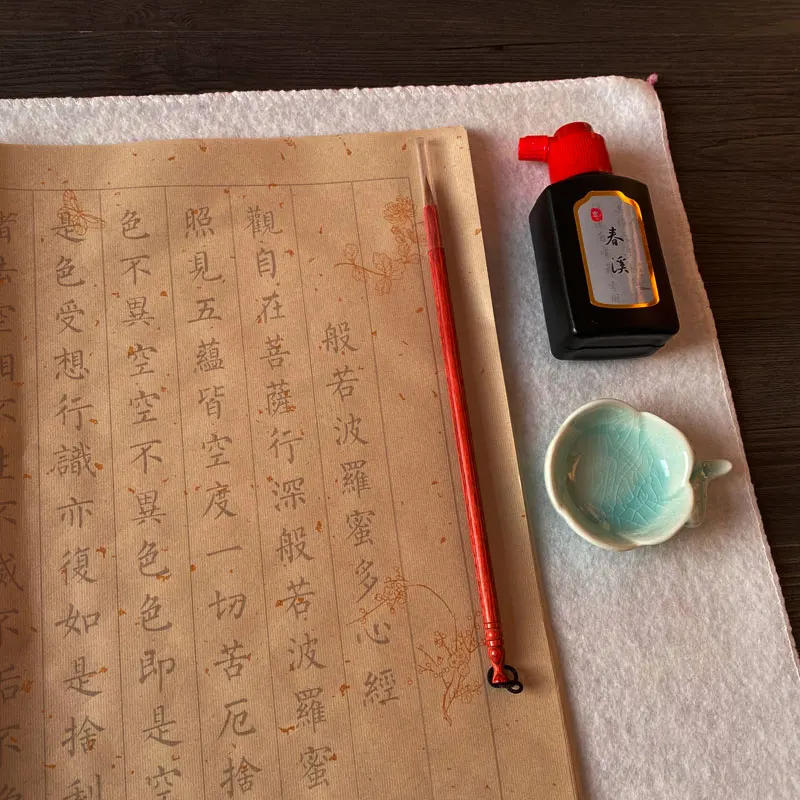 般若波羅蜜多心經
觀自在菩薩行深般若波羅蜜
照見五蘊皆空度一切苦厄捨
色不異空空不異色色即是空
是色受想行識亦復如是捨利
春溪